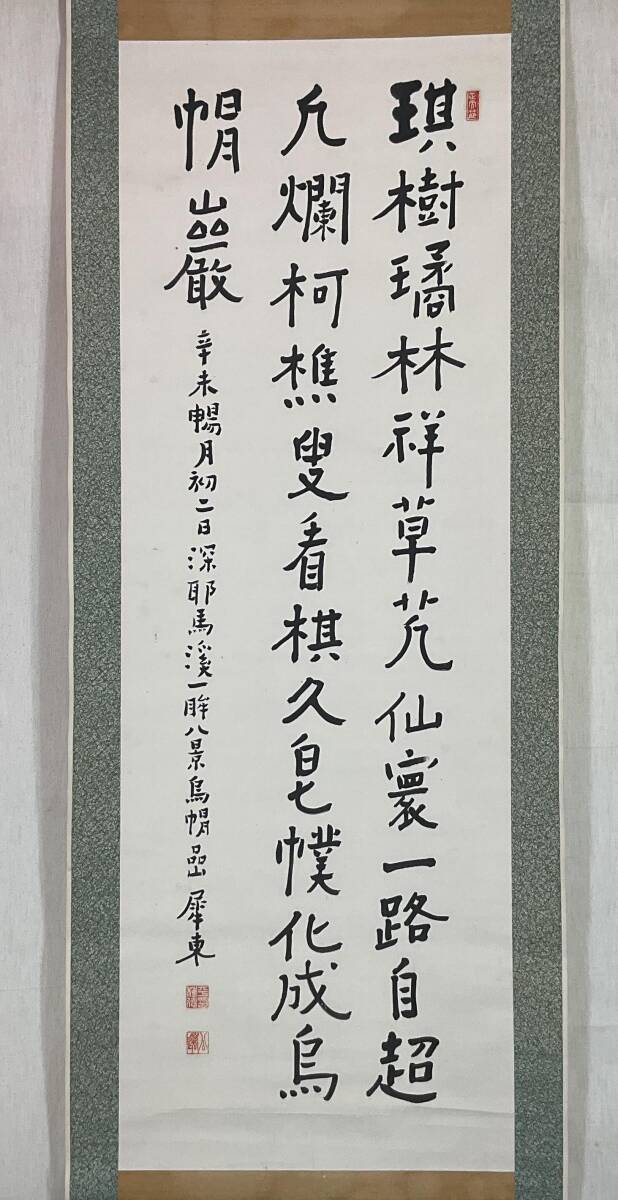 琪樹璚林祥草芃仙寰一路自超
凢爛柯樵叟看棋久皂幞化成烏
帽巖
辛未暢月初二日深耶馬溪一眸八景烏帽嵒 犀東